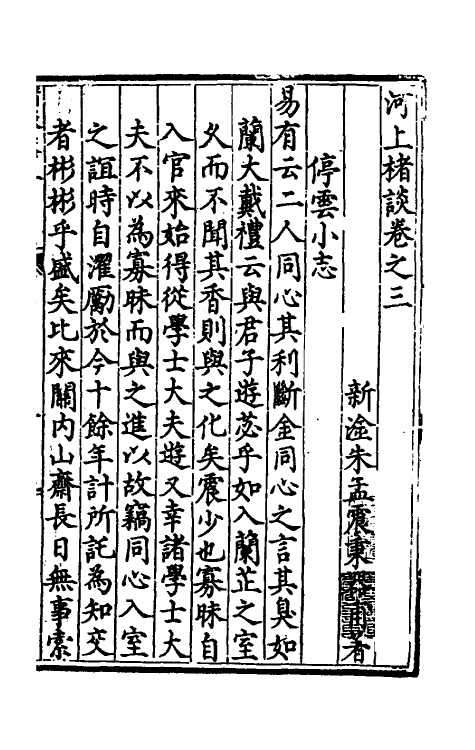 河上楮談卷之三
新淦朱孟震秉
者
停雲小志
易有云二人同心其利斷金同心之言其臭如
蘭大戴禮云與君子遊苾乎如入蘭芷之室
久而不聞其香則與之化矣震少也寡昧自
入官來始得從學士大夫遊又幸諸學士大
夫不以為寡昧而與之進以故竊同心入室
之誼時自濯勵於今十餘年計所託為知交
者彬彬乎盛矣比來關內山齋長日無事索